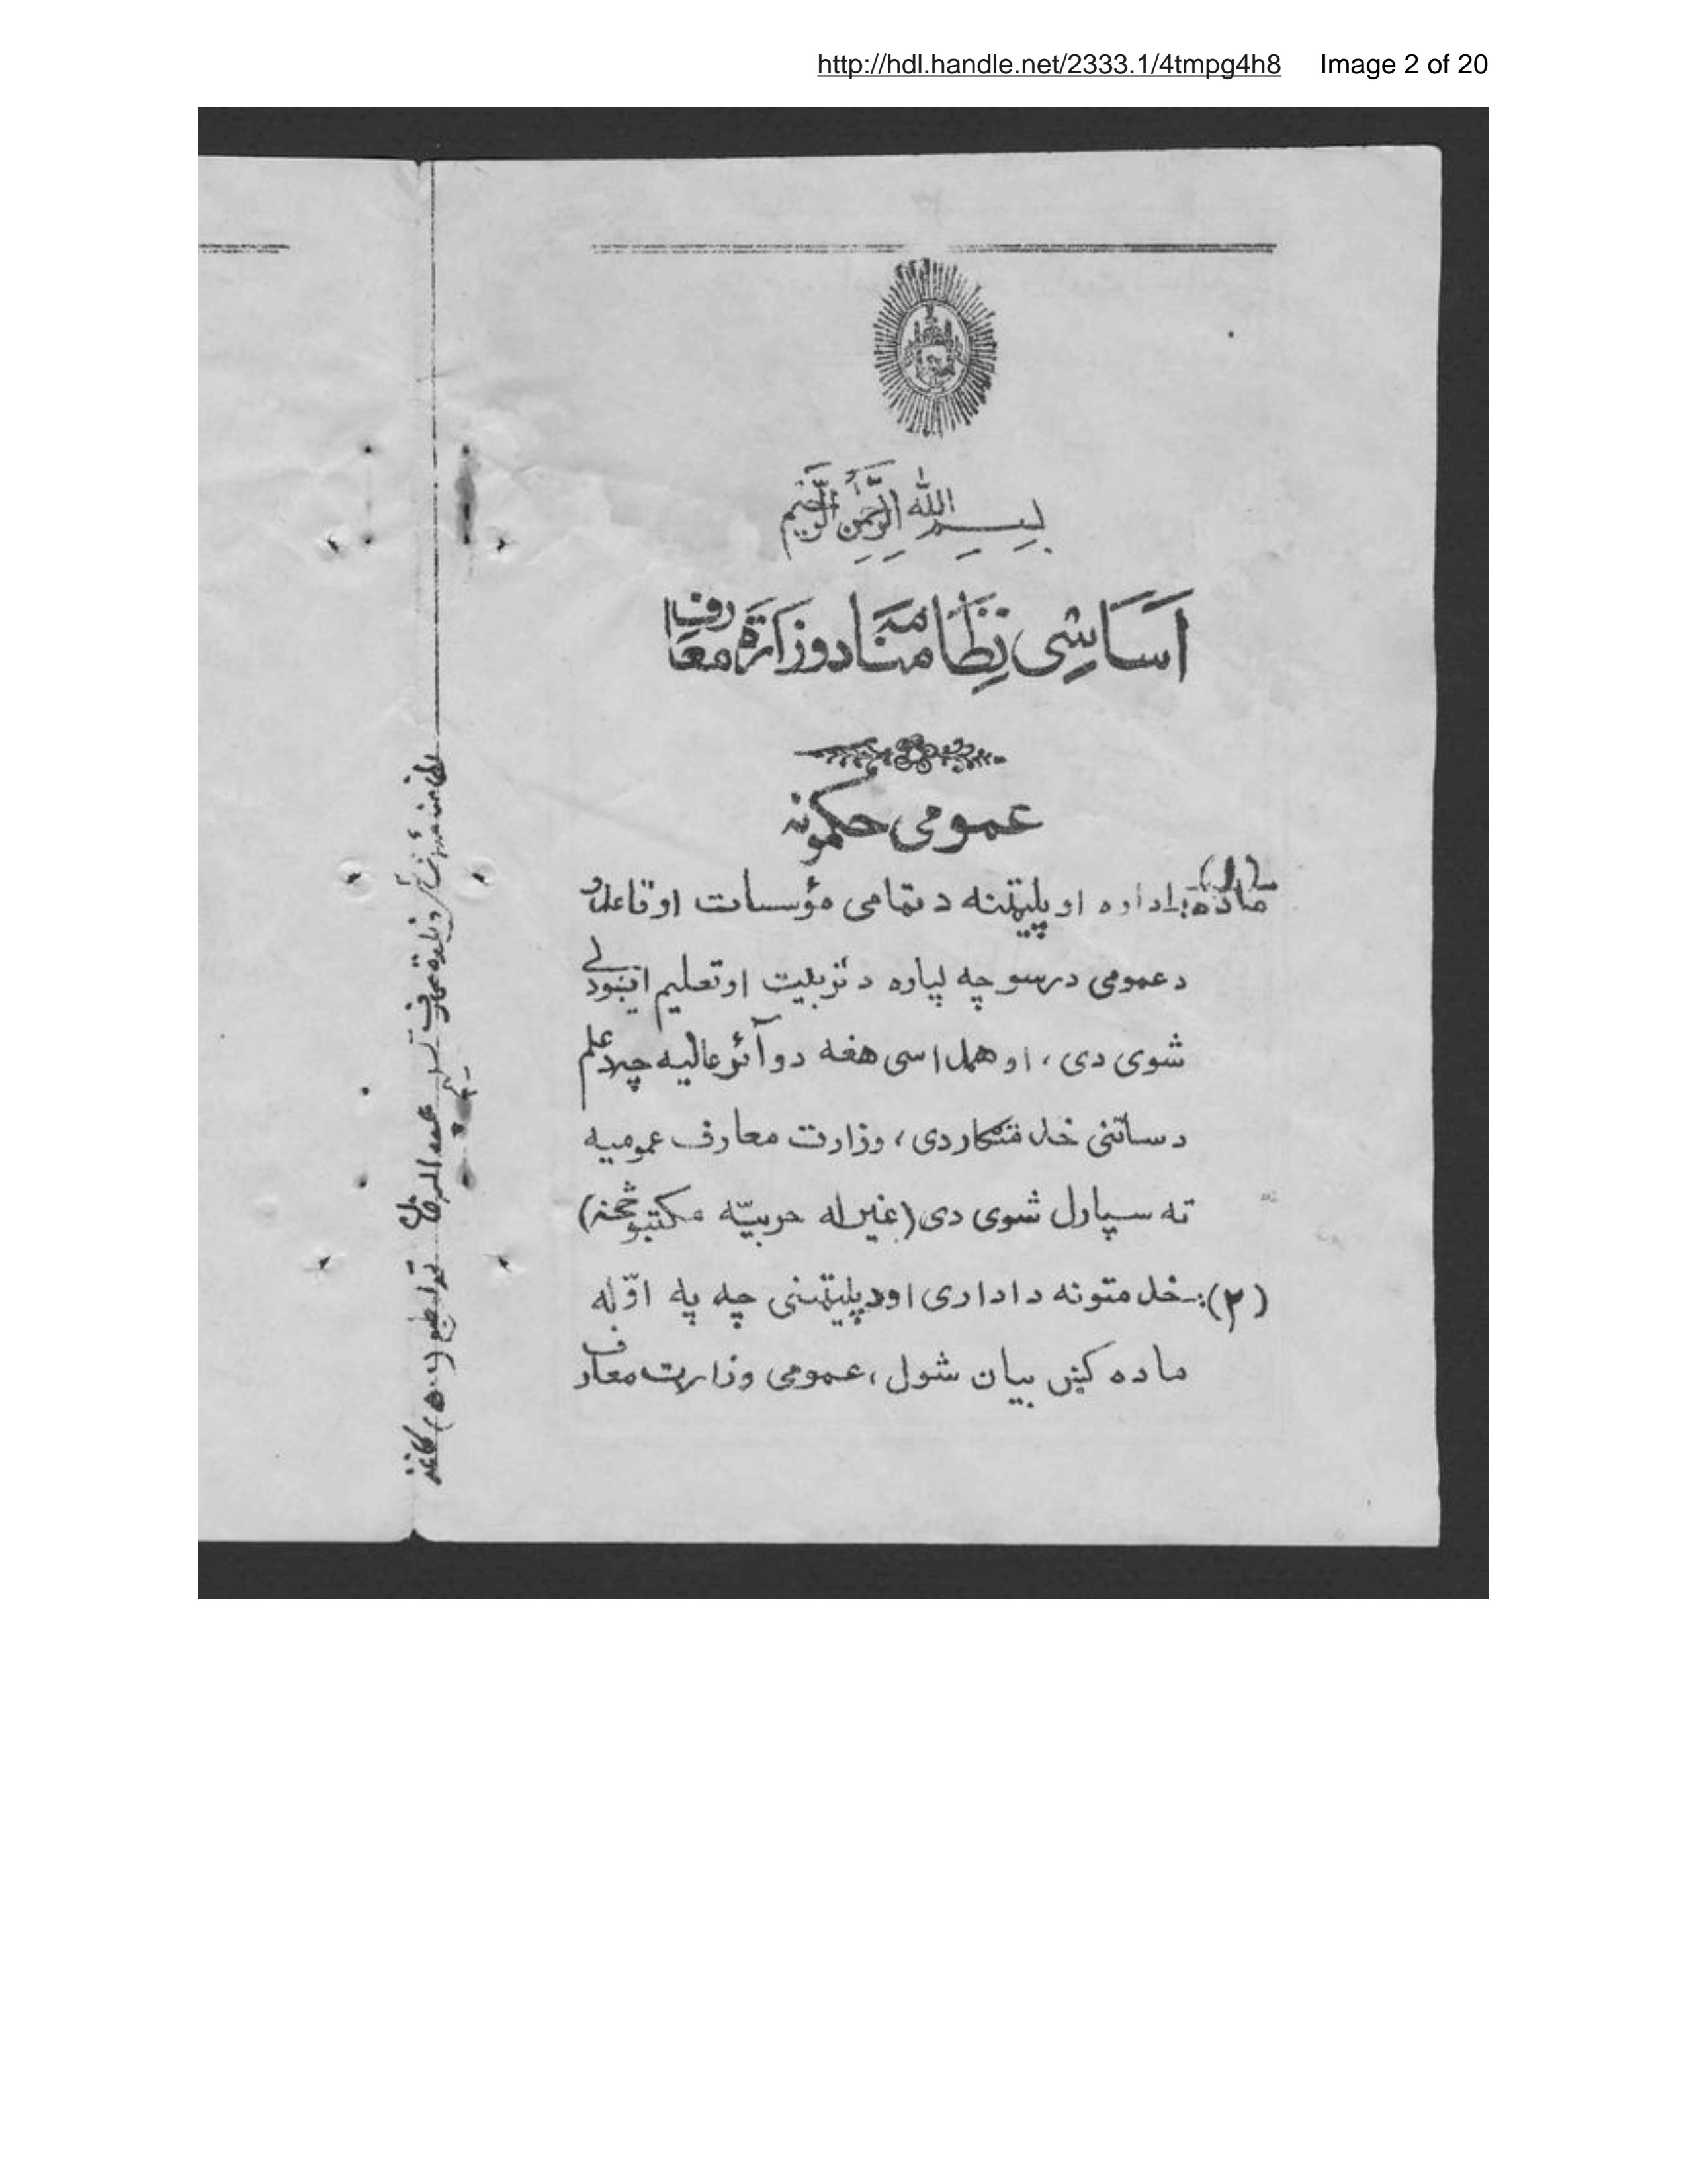 http://hdl.handle.net/2333.1/4tmpg4h8 Image 2 of 20
بسم الله الرحمن الرحیم
اساسی نظامنامه د وزارة معارف
عمومی حکمونه
ماده (۱): اداره او پلیټنه د تمامی مؤسسات او قاعدو
د عمومی درسو چه لپاره د تربیت او تعلیم ایښودلے
شوی دی، او همداسی هغه دوآئر عالیه چه د علم
د ساتنی خدمتگار دی، وزارت معارف عمومیه
ته سپارل شوی دی (غیر له حربیّه مکتبو څخه)
(۲):- خدمتونه د اداری او د پلیټنی چه په اوّله
ماده کښ بیان شول، عمومی وزارت معارف